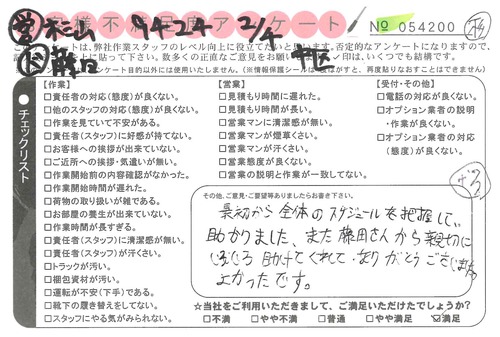 営 杉山 9424 2/4 No 054200
お客様不満足度アンケート
いは、弊社作業スタッフのレベル向上に役立てたい
に貼って下さい。数多くの正直なご意見をお願い
ンケート目的以外には使用いたしません。(※情報保護シール
中区
チェックリスト
【作業】
□責任者の対応(態度)が良くない。
□他のスタッフの対応(態度)が良くない。
□作業を見ていて不安がある。
□責任者(スタッフ)に好感が持てない。
□お客様への挨拶が出来ていない。
□ご近所への挨拶・気遣いが無い。
□作業開始前の内容確認がなかった。
□作業開始時間が遅れた。
□荷物の取り扱いが雑である。
□お部屋の養生が出来ていない。
□作業時間が長すぎる。
□責任者(スタッフ)に清潔感が無い。
□責任者(スタッフ)が汗くさい。
□トラックが汚い。
□梱包資材が汚い。
□運転が不安(下手)である。
□靴下の履き替えをしてない。
□スタッフにやる気がみられない。
【営業】
□見積もり時間に遅れた。
□見積もり時間が長い。
□営業マンに清潔感が無い。
□営業マンが煙草くさい。
□営業マンが汗くさい。
□営業態度が良くない。
□営業の説明と作業が一致してない。
【受付・その他】
□電話の対応が良くない。
□オプション業者の説明
・作業が良くない。
□オプション業者の対応
(態度)が良くない。
その他、ご意見・ご要望等ありましたらお書き下さい。
最初から全体のスケジュールを把握して、
助かりました、また藤田さんから親切に
いろいろ助けてくれて、ありがとうございました
よかったです。
☆当社をご利用いただきまして、ご満足いただけたでしょうか?
□不満 □やや不満 □普通 □やや満足 ☑満足